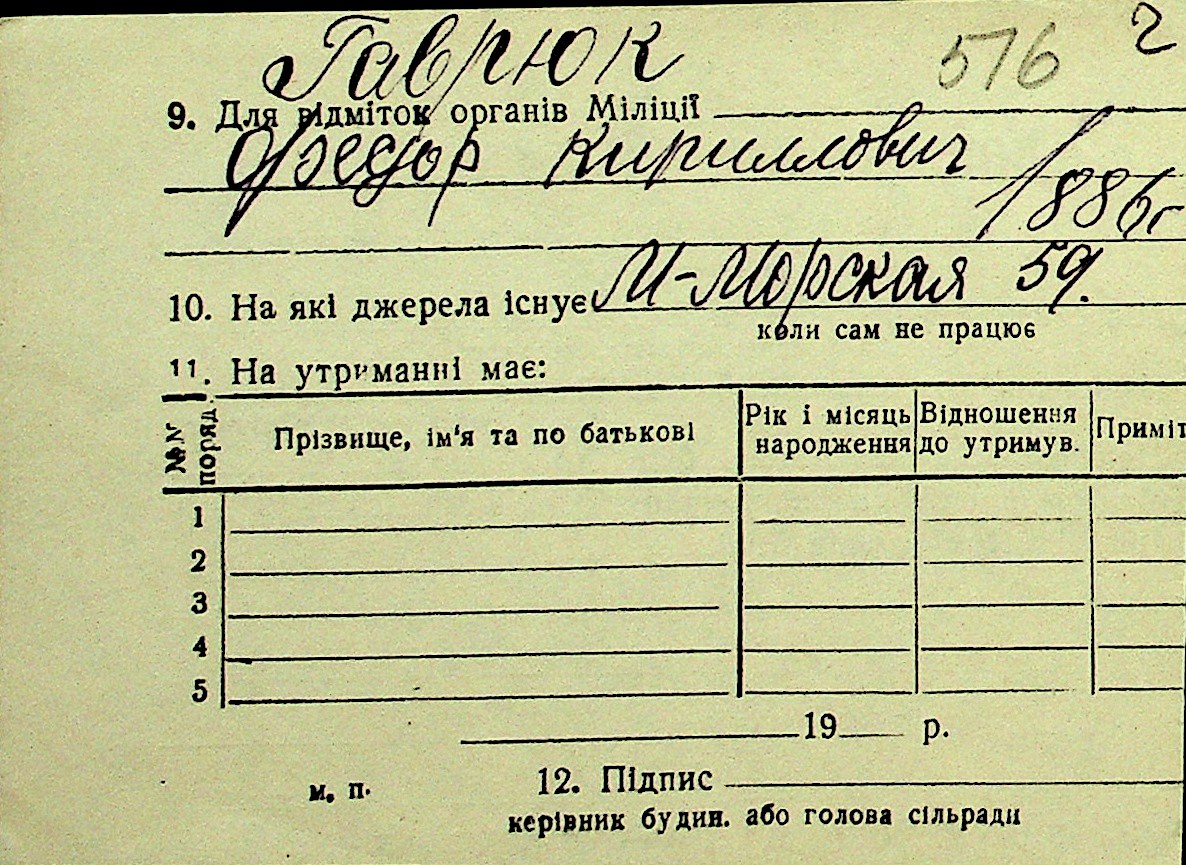 Гаврюк 576 2
9. Для відміток органів Міліції
Федор Кириллович
1886г
10. На які джерела існує М-Морская 59.
коли сам не працює
11. На утриманні має:
№№ поряд.
Прізвище, ім'я та по батькові
Рік і місяць народження
Відношення до утримув.
Приміт
1
2
3
4
5
19 р.
м. п.
12. Підпис
керівник будин. або голова сільради